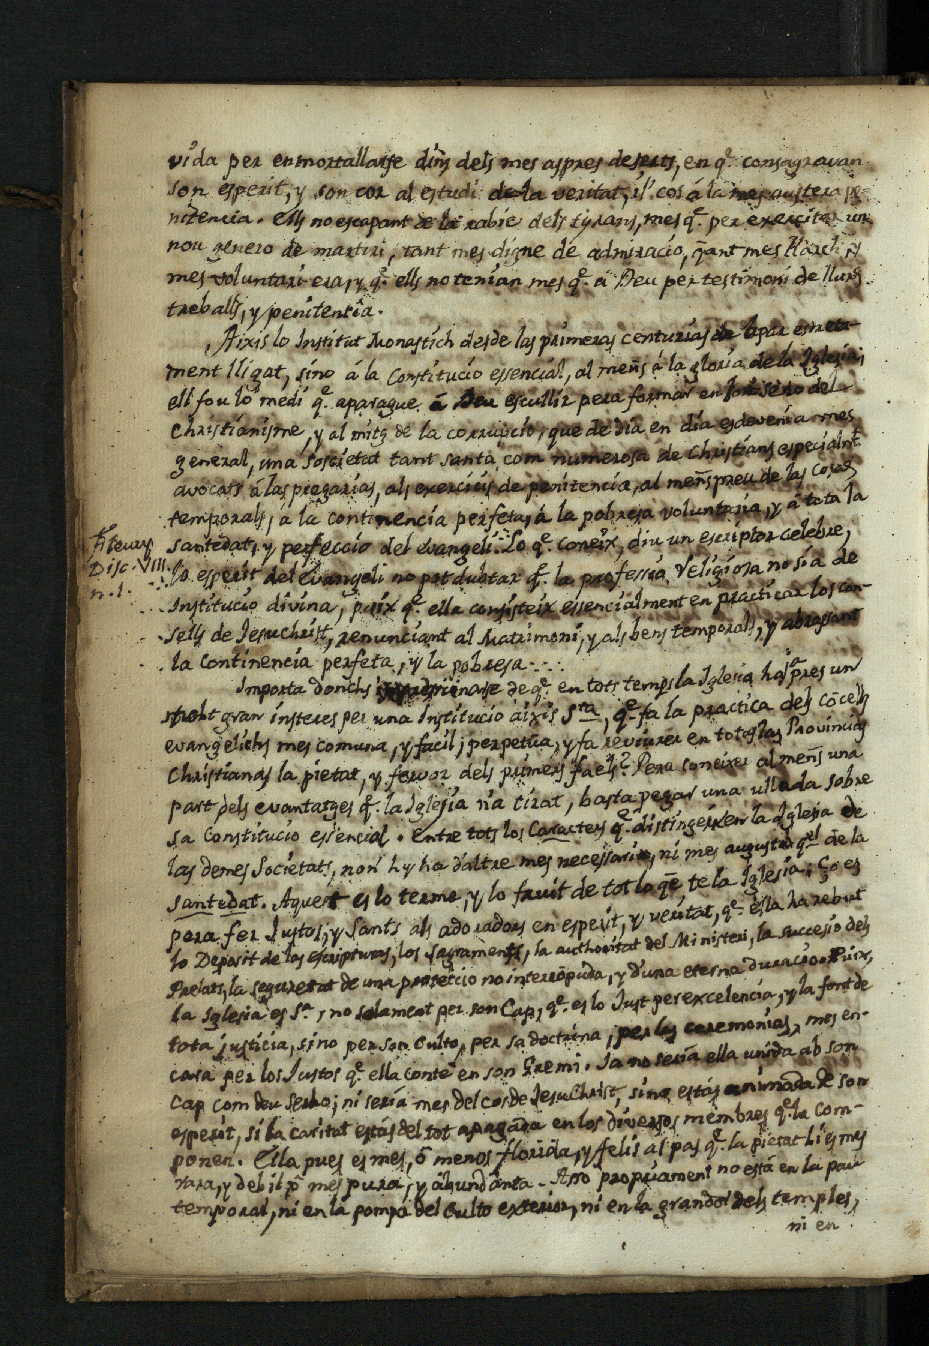 vida per enmortallarse dins dels mes aspres deserts, en q.e consagravan
son esperit, y son cor al estudi de la veritat, y l' cos á la mes austera pe-
nitencia. Ells no escapant de la rabie dels tyrans, mes q.e per exercitar un
nou genero de martiri, tant mes digne de admiracio, q̃ant mes llarch, y
mes voluntari era, y q.e ells no tenían mes q.e á Deu per testimoni de llurs
treballs, y penitencia.
Aixis lo Institut Monastich desde las primeras centurias de la par estreta-
ment lligat, sino á la Constitució essencial, al meñs á la gloria de la Iglesia;
ell fou lo medi q.e aparague á Deu escullir pera formar en lo seno del
Christianisme, y al mitg de la corrupció, que de dia en dia esdevenía mes
general, una societat tant santa com numerosa de Christians especialm.t
avocats á las pregarias, als exercicis de penitencia, al meñspreu de las cosas
temporals, á la continencia perfeta, á la pobresa voluntaria, y á tota la
santedat, y perfeccio del evangeli. Lo q.e coneix, diu un escriptor celebre,
Fleury
Disc. VIII.
n. 1.
lo esperit del evangeli no pot dubtar q.e la professió religiosa no sía de
Institucio divina, puix q.e ella consisteix essencialment en practicar los con-
sells de Jesuchrist, renunciant al Matrimoni, y als bens temporals, y abrassant
la continencia perfeta, y la pobresa....
Importa donchs de q.e en tots temps la Iglesia haja pres un
molt gran interes per una institucio aixis S.ta, q.e fa la practica dels cõcells
evangelichs mes comuna, y facil; perpetua, y fa reviurer en totas las Provincias
Christianas la pietat, y fervor dels primers faels? Pera coneixer al meñs una
part dels evantatges q.e la Iglesia n'a tirat, basta pegar una ullada sobre
sa Constitució essencial. Entre tots los Caracters q.e distingeixen la Iglesia de
las demes Societats, non' hy ha d'altre mes necessaria, ni mes augusta q.el de la
santedat. Aquest es lo terme, y lo fruit de tot lo q̃e te la Iglesia; Ço es
pera fer Justos, y Sants als adoradors en esperit, y veritat, q.e ella ha rebut
lo Deposit de las escripturas, los sagraments, la authoritat del Ministeri, la successio dels
Prelats, la seguretat de una proteccio no interrõpuda, y d'una eterna duracio. Puix,
la Iglesia es S.a, no solament per son Cap, q.e es lo Just per excelencia, y la font de
tota justicia, sino per son Culto, per sa doctrina, per las ceremonias, mes en-
cara per los Justos q.e ella conte en son Gremi. Ja no sería ella unida ab son
Cap com deu serho; ni sería mes del cos de JesuChrist, sino estás animada de son
esperit, si la caritat estás del tot apagada en los diversos membres q.e la com-
ponen. Ella pues es mes, ó menos florida, y felis al pas q.e la pietat hi es mes
rara, y debil, ó mes pura, y abundanta. Asso propiament no está en la pau
temporal, ni en la pompa del Culto exterior, ni en la grandor dels temples,
ni en